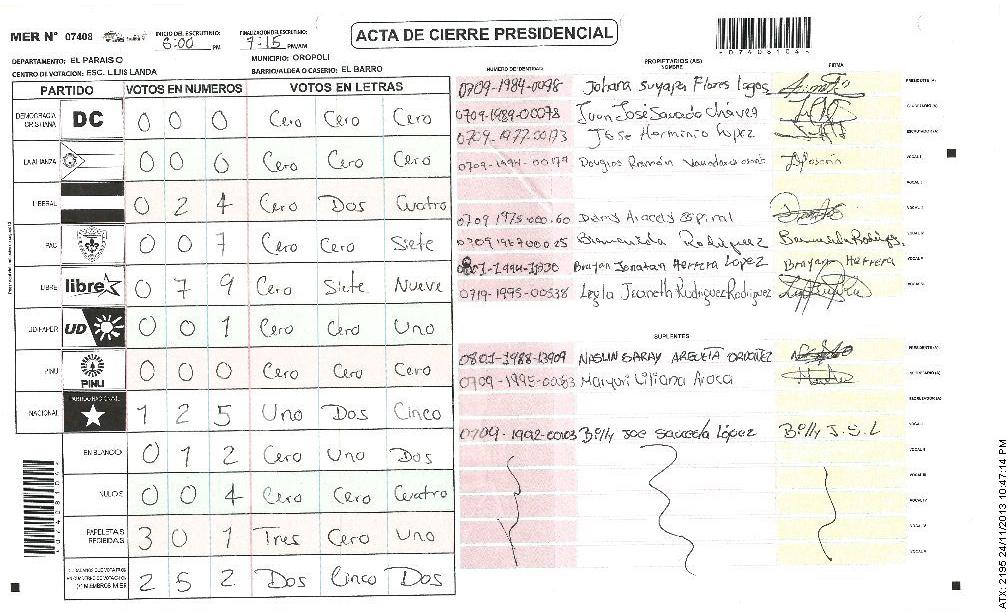 MER N° 07408 INICIO DEL ESCRUTINIO: 6:00 PM FINALIZACION DEL ESCRUTINIO: 7:15 PM/AM
ACTA DE CIERRE PRESIDENCIAL
07408104
DEPARTAMENTO: EL PARAISO MUNICIPIO: OROPOLI
CENTRO DE VOTACION: ESC. LUIS LANDA BARRIO/ALDEA O CASERIO: EL BARRO
PARTIDO VOTOS EN NUMEROS VOTOS EN LETRAS
DEMOCRACIA CRISTIANA DC 0 0 0 Cero Cero Cero
LA ALIANZA 0 0 0 Cero Cero Cero
LIBERAL 0 2 4 Cero Dos Cuatro
PAC 0 0 7 Cero Cero Siete
LIBRE libre 0 7 9 Cero Siete Nueve
UD FAPER UD 0 0 1 Cero Cero Uno
PINU PINU 0 0 0 Cero Cero Cero
NACIONAL PARTIDO NACIONAL 1 2 5 Uno Dos Cinco
EN BLANCO 0 1 2 Cero Uno Dos
NULOS 0 0 4 Cero Cero Cuatro
PAPELETAS RECIBIDAS 3 0 1 Tres Cero Uno
CIUDADANOS QUE VOTARON 2 5 2 Dos Cinco Dos
NUMERO DE IDENTIDAD PROPIETARIOS (AS) NOMBRE FIRMA
0709-1984-0098 Johana Suyapa Flores Lagos PRESIDENTE (A)
0709-1989-00078 Juan José Saucedo Chávez SECRETARIO (A)
0709-1977-00173 Jose Herminio Lopez ESCRUTADOR (A)
0709-1994-00179 Douglas Ramón VOCAL I
VOCAL II
0709 1975-000.60 Deny Aracely Espinal VOCAL III
0709 1967 000 25 Bienvenida Rodriguez Bienvenida Rodrigz. VOCAL IV
Brayan Jonatan Herrera Lopez Brayan Herrera VOCAL V
0719-1995-00538 Leyla Jeaneth Rodriguez Rodriguez
SUPLENTES
0801-1988-13909 NASLIN SARAY ARGUETA ORDOÑEZ PRESIDENTE (A)
0709-1995-00083 Maryuri Liliana Aroca SECRETARIO (A)
ESCRUTADOR (A)
0704-1992-00103 Billy Joe Sauceda López Billy J. S. L VOCAL I
VOCAL II
VOCAL III
VOCAL IV
VOCAL V
07408104
ATX: 2195 24/11/2013 10:47:14 PM